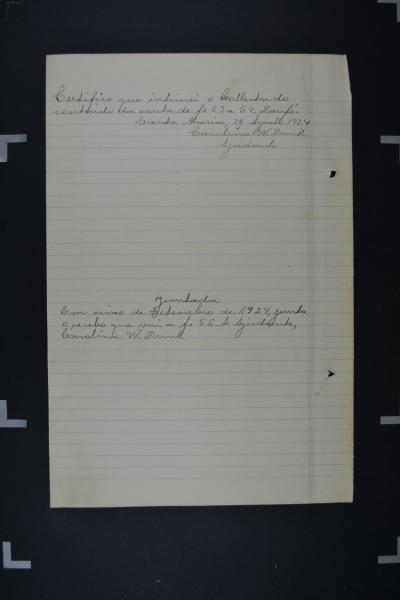 Certifico que intimei o Collector do
conteúdo da conta de fs 53 a 54. Doufé.
Santa Maria, 29 Agosto 1924
Carolina W. Druck
Ajudante
Juntada
Em cinco de Setembro de 1924, junto
o recebo que vai a fs 56. A Ajudante,
Carolina W. Druck